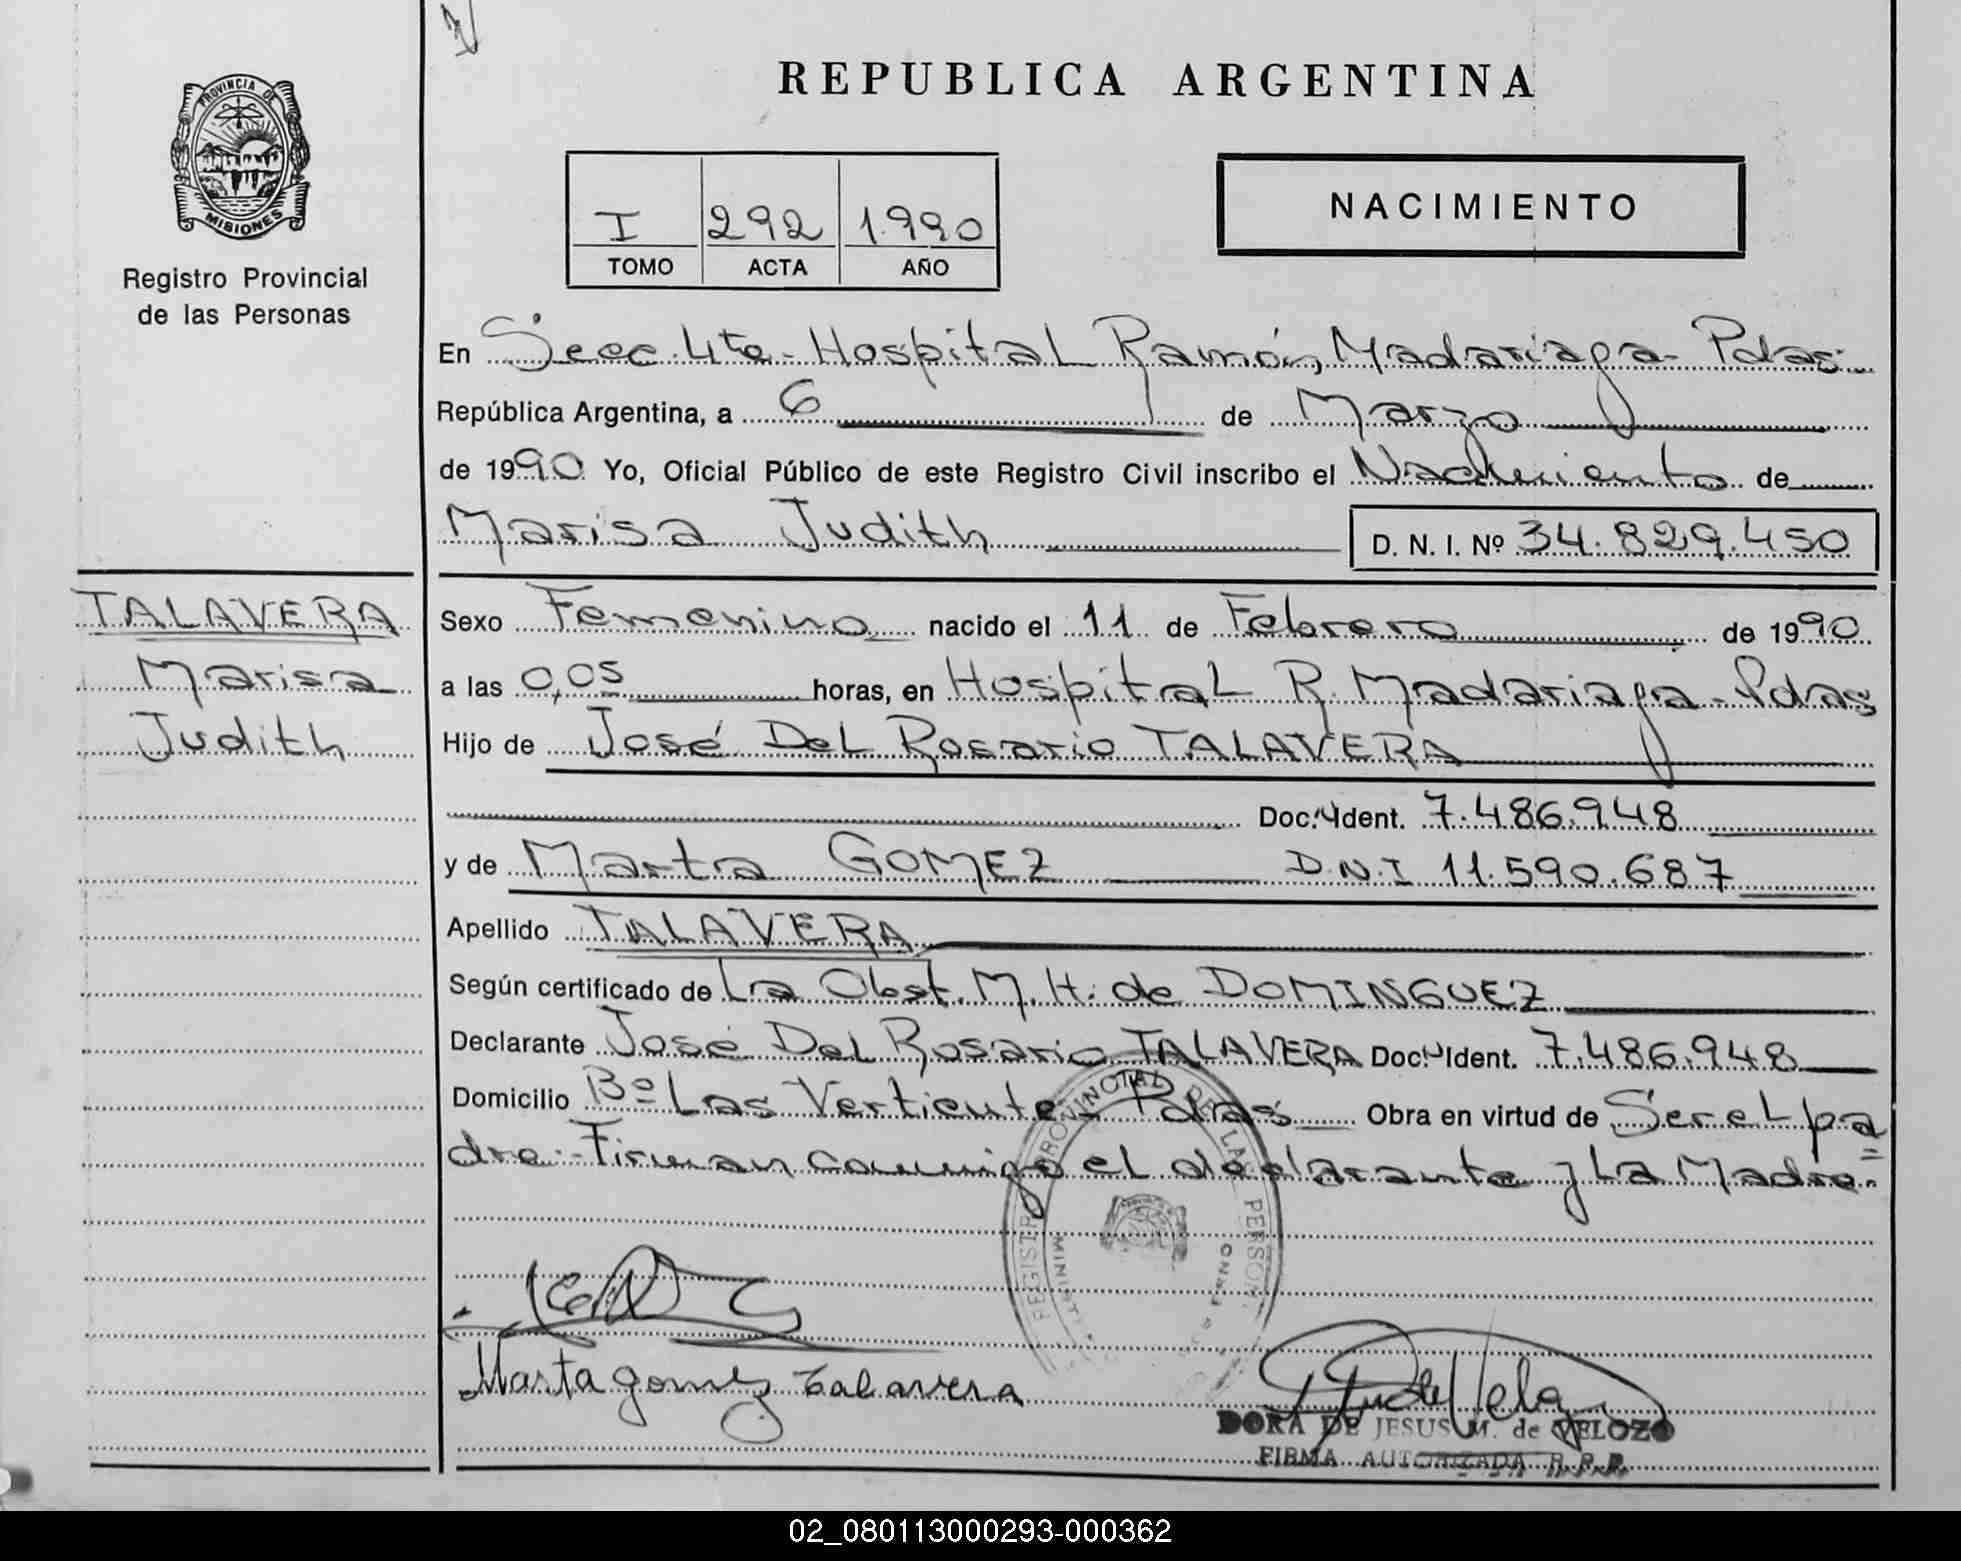 REPUBLICA ARGENTINA
PROVINCIA DE
MISIONES
Registro Provincial
de las Personas
I 292 1.990
TOMO ACTA AÑO
NACIMIENTO
En Secc. 4ta - Hospital Ramón Madariaga - Pdas.
República Argentina, a 6 de Marzo
de 1990 Yo, Oficial Público de este Registro Civil inscribo el Nacimiento de
Marisa Judith D. N. I. Nº 34.829.450
TALAVERA
Marisa
Judith
Sexo Femenino nacido el 11 de Febrero de 1990
a las 0,05 horas, en Hospital R. Madariaga - Pdas
Hijo de José Del Rosario TALAVERA
Doc. Ident. 7.486.948
y de Marta GOMEZ D.N.I 11.590.687
Apellido TALAVERA
Según certificado de La Obst. M. H. de DOMINGUEZ
Declarante José Del Rosario TALAVERA Doc. Ident. 7.486.948
Domicilio Bº Las Vertiente - Pdas Obra en virtud de Ser el pa
dre.- Firman conmigo el declarante y La Madre.
REGISTRO PROVINCIAL DE LAS PERSONAS
Marta gomez talavera
DORA DE JESUS M. de VELOZO
FIRMA AUTORIZADA R.P.P.
02_080113000293-000362